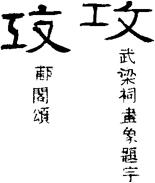 攻
武梁祠畫象題字
攻
郙閣頌